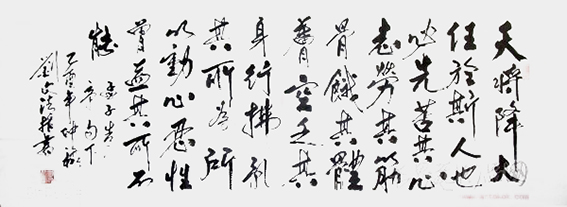 天將降大
任於斯人也
必先苦其心
志勞其筋
骨餓其體
膚空乏其
身行拂亂
其所為所
以動心忍性
曾益其所不
能
孟子告
子句下
乙酉年仲秋